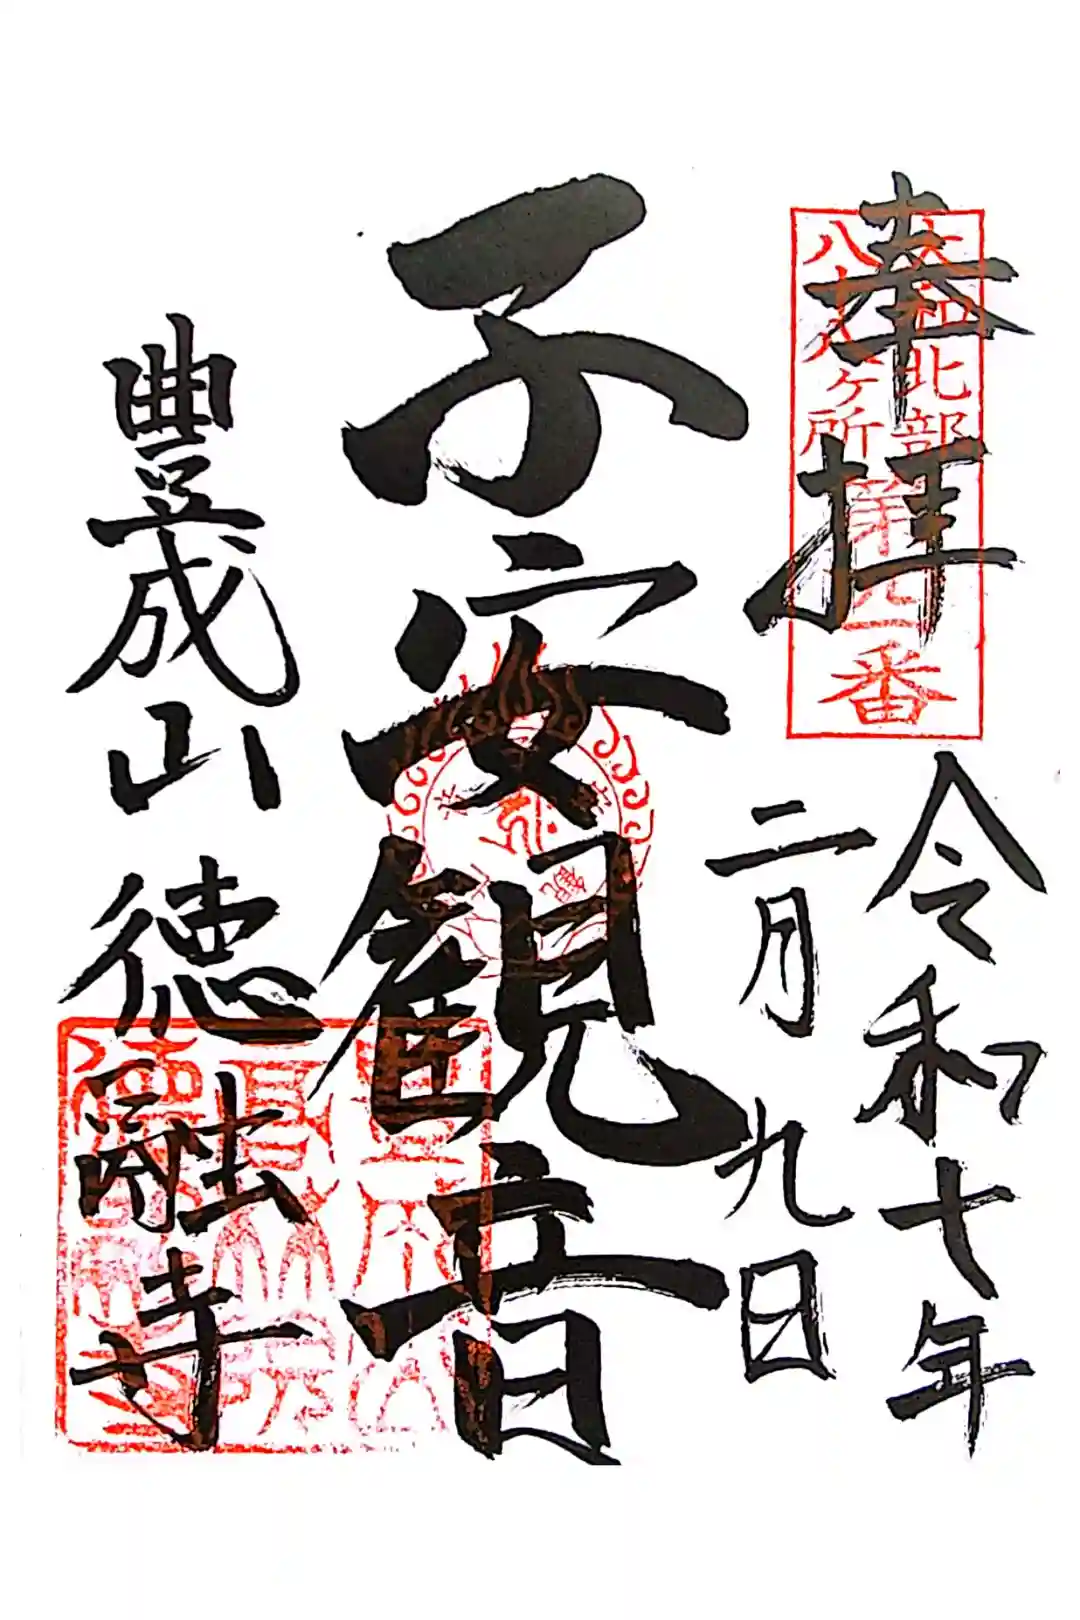 奉拝
大和北部
八十八ヶ所
番
令和十年
二月九日
子安観音
豊成山
徳融寺